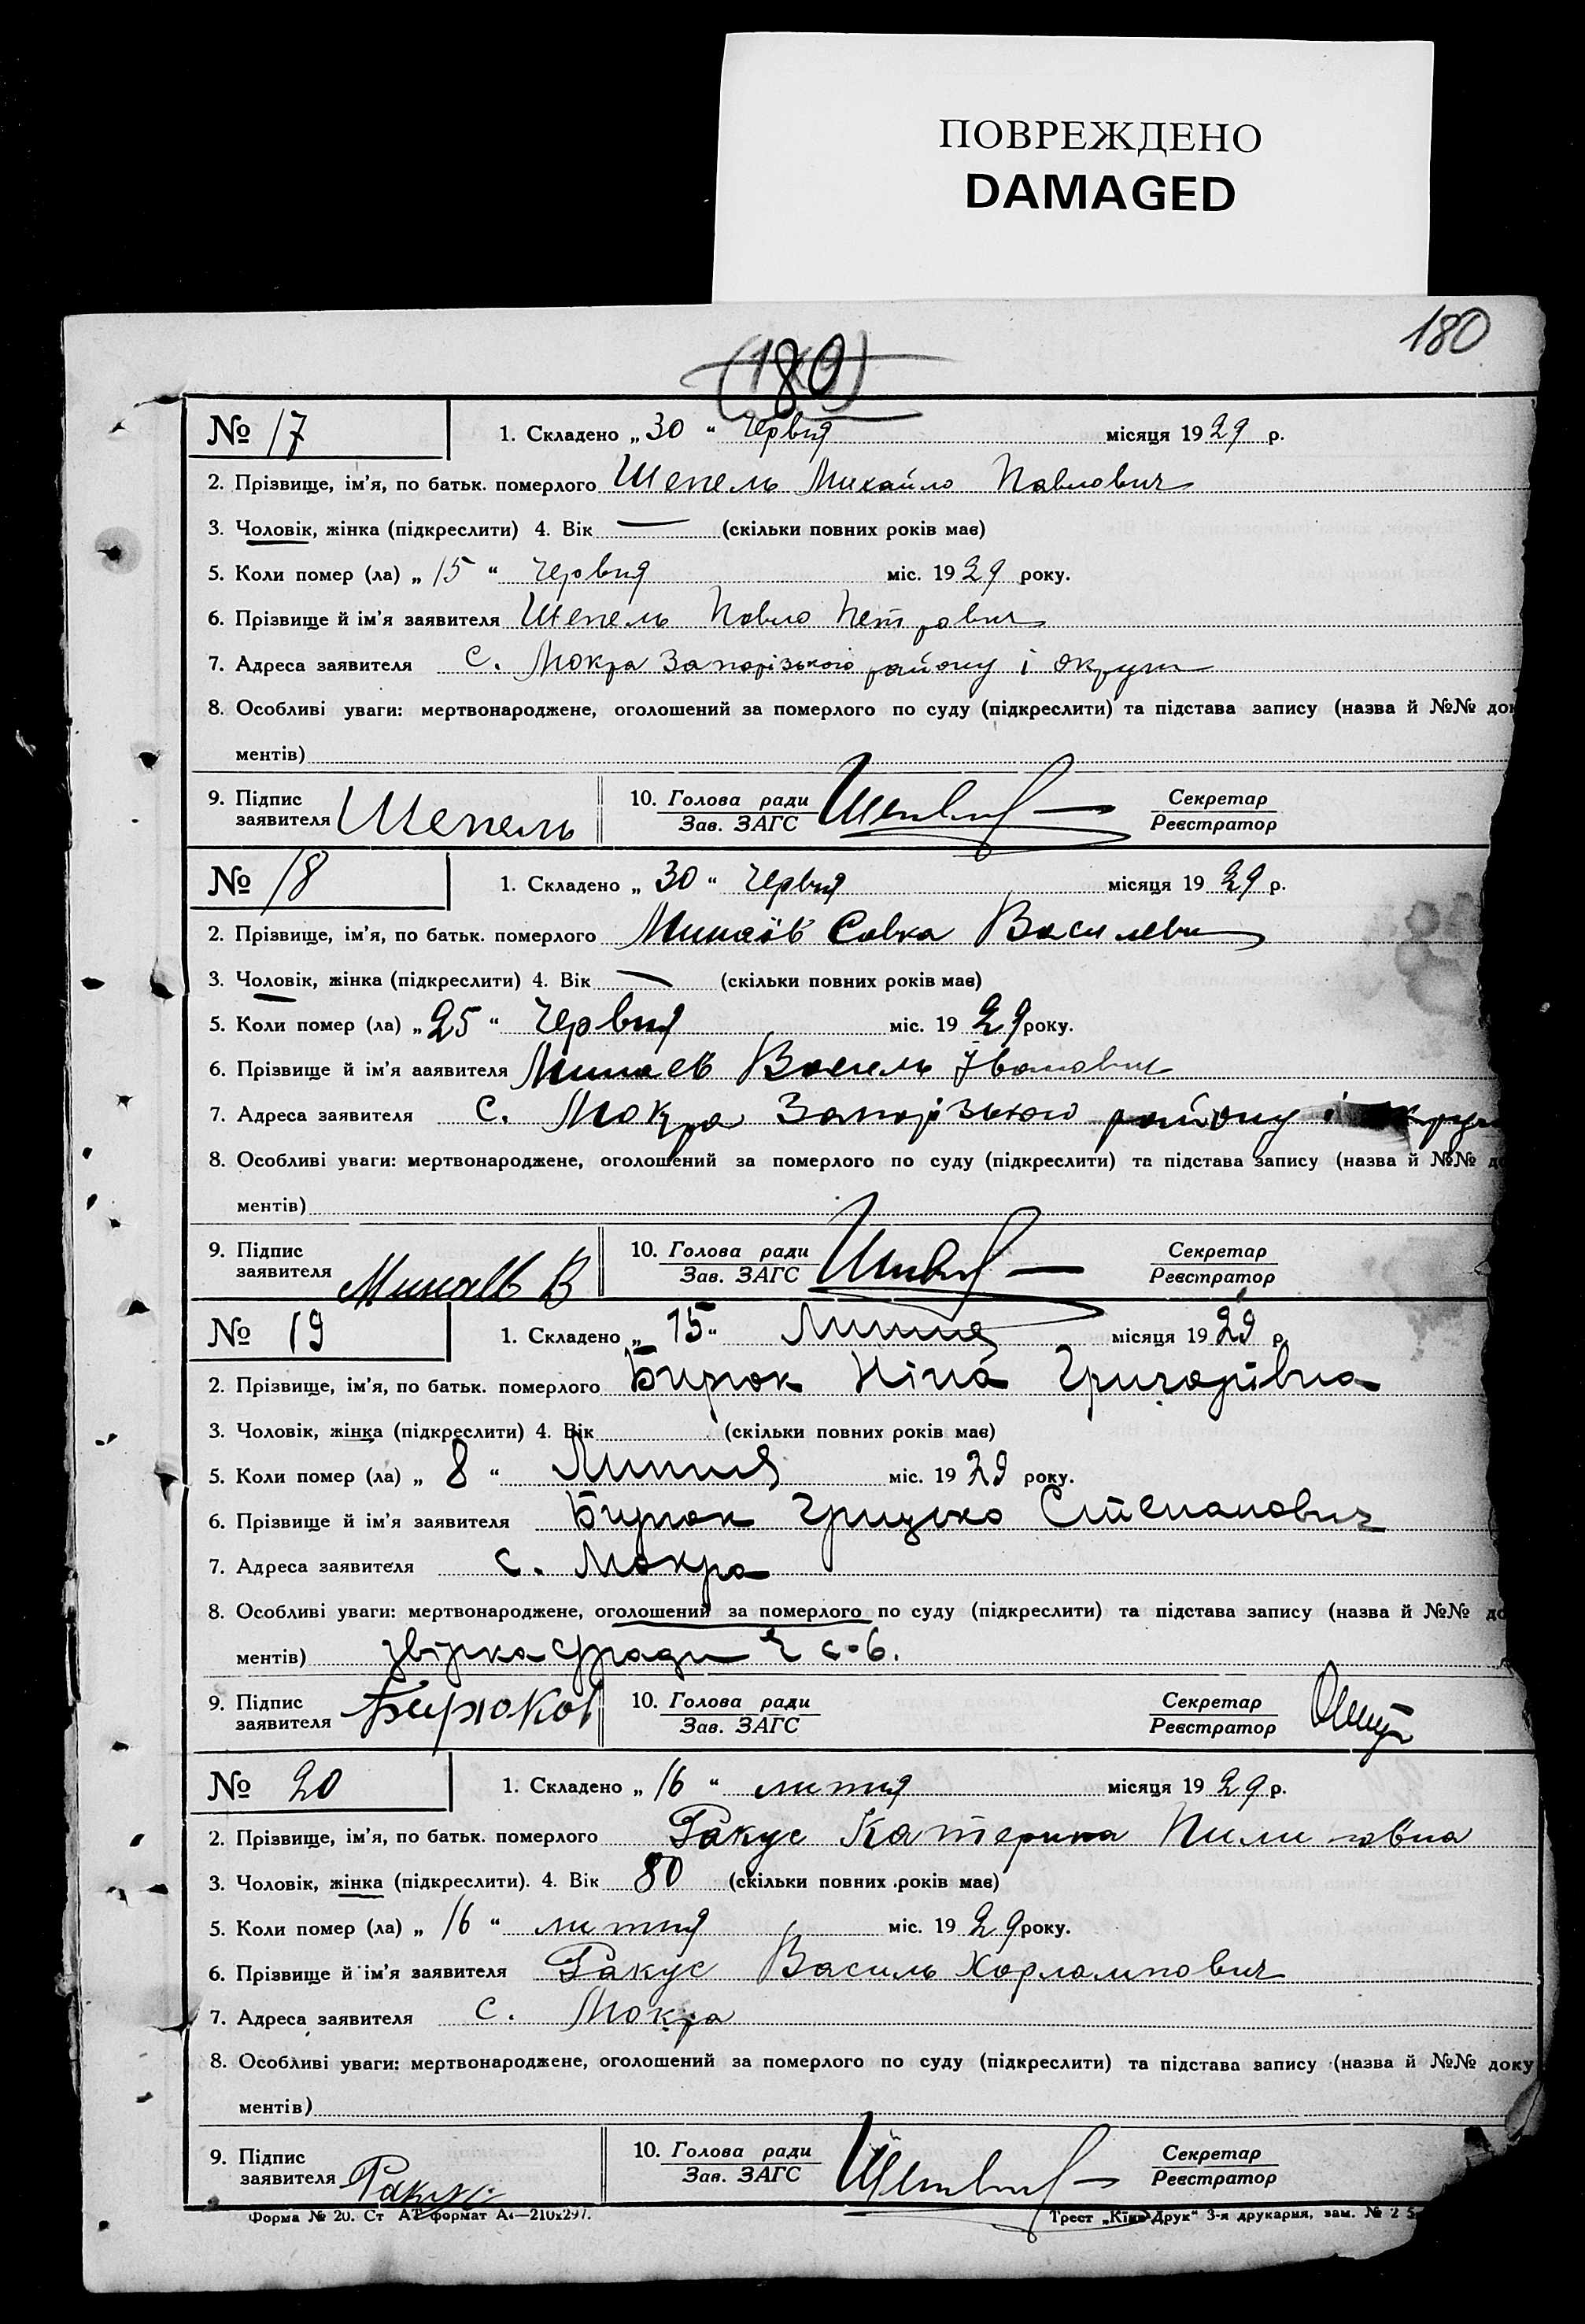 ПОВРЕЖДЕНО
DAMAGED
180
(180)
№ 17 1. Складено „ 30 “ червня місяця 19 29 р.
2. Прізвище, ім’я, по батьк. померлого Шепель Михайло Павлович
3. Чоловік, жінка (підкреслити) 4. Вік — (скільки повних років має)
5. Коли помер (ла) „ 15 “ червня міс. 19 29 року.
6. Прізвище й ім’я заявителя Шепель Павло Петрович
7. Адреса заявителя с. Мокра Запорізького району і округи
8. Особливі уваги: мертвонароджене, оголошений за померлого по суду (підкреслити) та підстава запису (назва й №№ док
ментів)
9. Підпис заявителя Шепель 10. Голова ради Зав. ЗАГС Секретар Реєстратор
№ 18 1. Складено „ 30 “ червня місяця 19 29 р.
2. Прізвище, ім’я, по батьк. померлого Минаїв Савка Васильеви
3. Чоловік, жінка (підкреслити) 4. Вік — (скільки повних років має)
5. Коли помер (ла) „ 25 “ червня міс. 19 29 року.
6. Прізвище й ім’я ааявителя Минаев Василь Іванович
7. Адреса заявителя с. Мокра Запорізького району і окру
8. Особливі уваги: мертвонароджене, оголошений за померлого по суду (підкреслити) та підстава запису (назва й №№ до
ментів)
9. Підпис заявителя Минаев В 10. Голова ради Зав. ЗАГС Секретар Реєстратор
№ 19 1. Складено „ 15 “ Липня місяця 19 29 р.
2. Прізвище, ім’я, по батьк. померлого Бирюк Ніна Григорівна
3. Чоловік, жінка (підкреслити) 4. Вік (скільки повних років має)
5. Коли помер (ла) „ 8 “ Липня міс. 19 29 року.
6. Прізвище й ім’я заявителя Бирюк Грицько Степанович
7. Адреса заявителя с. Мокра
8. Особливі уваги: мертвонароджене, оголошений за померлого по суду (підкреслити) та підстава запису (назва й №№ до
ментів)
9. Підпис заявителя Бирюков 10. Голова ради Зав. ЗАГС Секретар Реєстратор
№ 20 1. Складено „ 16 “ липня місяця 19 29 р.
2. Прізвище, ім’я, по батьк. померлого Ракус Катерина Пилиповна
3. Чоловік, жінка (підкреслити). 4. Вік 80 (скільки повних років має)
5. Коли помер (ла) „ 16 “ липня міс. 19 29 року.
6. Прізвище й ім’я заявителя Ракус Василь Харлампович
7. Адреса заявителя с. Мокра
8. Особливі уваги: мертвонароджене, оголошений за померлого по суду (підкреслити) та підстава запису (назва й №№ доку
ментів)
9. Підпис заявителя Ракус 10. Голова ради Зав. ЗАГС Секретар Реєстратор
Форма № 20. Ст А4 формат А4—210х297. Трест „Київ-Друк“ 3-я друкарня, зам. № 2 5